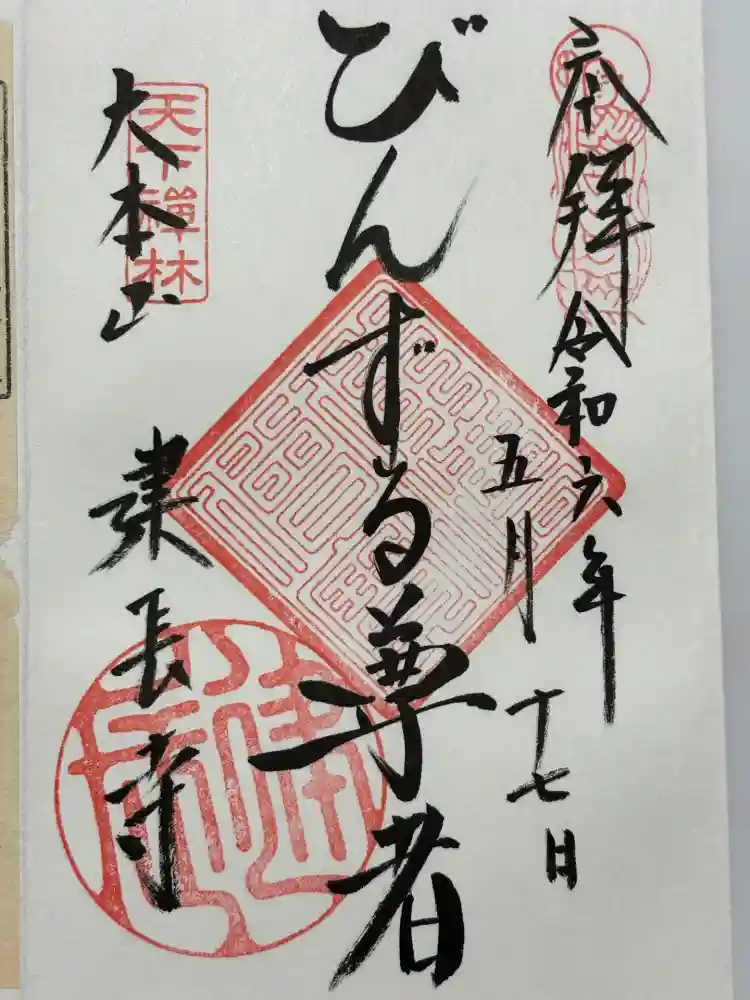 奉拝 令和六年
五月十七日
びんずる尊者
天下禅林
大本山
建長寺